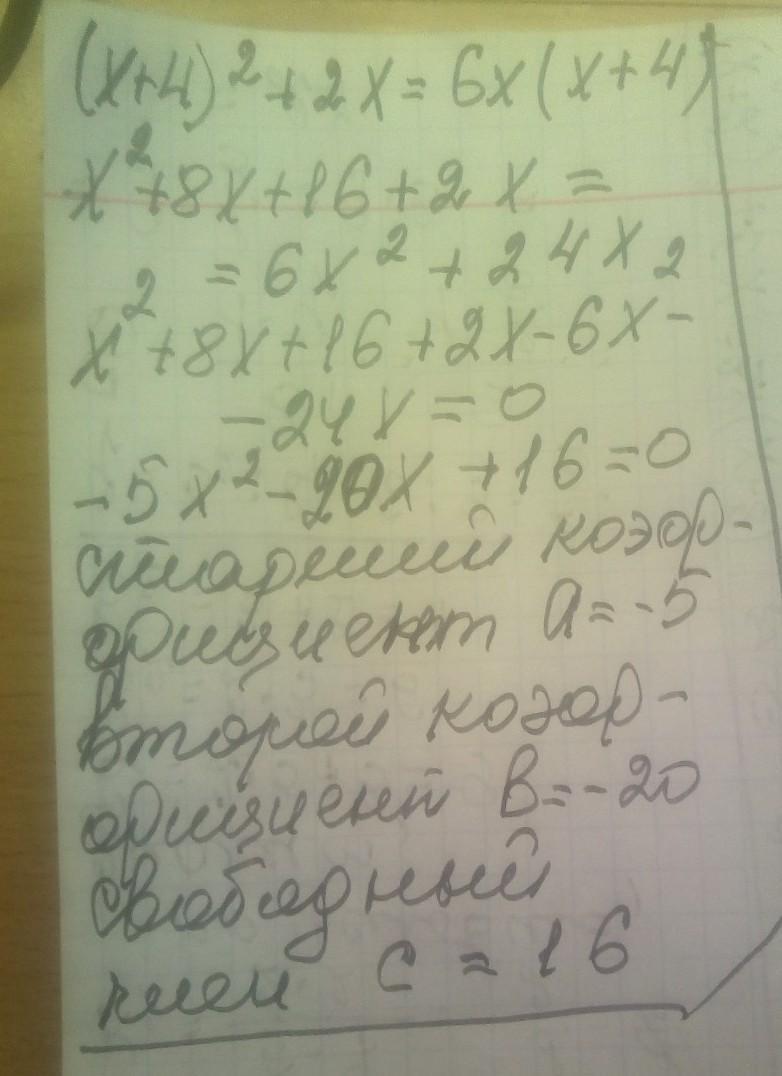 (x+4)² + 2x = 6x(x+4)
x²+8x+16+2x =
= 6x² + 24x
x²+8x+16+2x-6x²-
-24x = 0
-5x²-20x+16=0
старший коэф-
фициент a=-5
второй коэф-
фициент b=-20
свободный
член c = 16